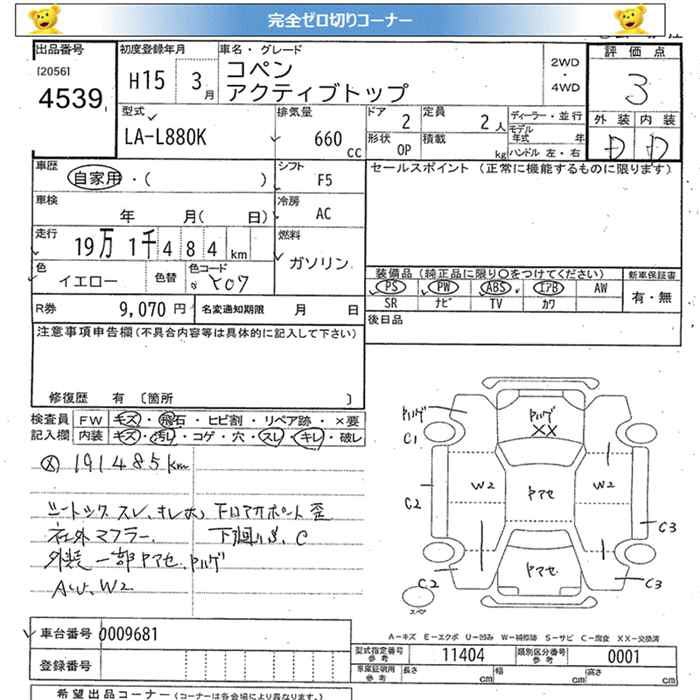 完全ゼロ切りコーナー
出品番号 初度登録年月 車名・グレード 評価点
[2056]
4539
H15 3 月
コペン
アクティブトップ
2WD
・
4WD
3
型式 排気量 ドア 定員 ディーラー・並行 外装 内装
LA-L880K 660 CC 2 2 人 モデル年式 年 D D
形状 OP 積載 kg ハンドル 左・右
車歴 自家用・( ) シフト F5 セールスポイント (正常に機能するものに限ります)
車検 年 月( 日) 冷房 AC
走行 19万 1千 4 8 4 km 燃料 ガソリン
色 イエロー 色替 色コード Y07
装備品 (純正品に限り○をつけてください) 新車保証書
PS PW ABS エアB AW 有・無
SR ナビ TV カワ
R券 9,070 円 名変通知期限 月 日 後日品
注意事項申告欄(不具合内容等は具体的に記入して下さい)
修復歴 有 [箇所 ]
検査員 FW キズ・飛石・ヒビ割・リペア跡・×要
記入欄 内装 キズ・汚レ・コゲ・穴・スレ・キレ・破レ
191485km
シートック スレ、キレ大、 下回アオポート 歪
社外マフラー 下廻 C
外装一部ヤマセ、ハゲ
AW、W2
ハゲ
ハゲ
XX
C1
W2 ヤマセ W2
C2 C3
ヤマセ
C2 C3
スペア
車台番号 0009681
A-キズ E-エクボ U-凹み W-補修跡 S-サビ C-腐食 XX-交換済
型式指定番号 参考 11404 類別区分番号 参考 0001
登録番号 車庫証明用 参考 長さ cm 幅 cm 高さ cm
希望出品コーナー (コーナーは各会場により異なります。)